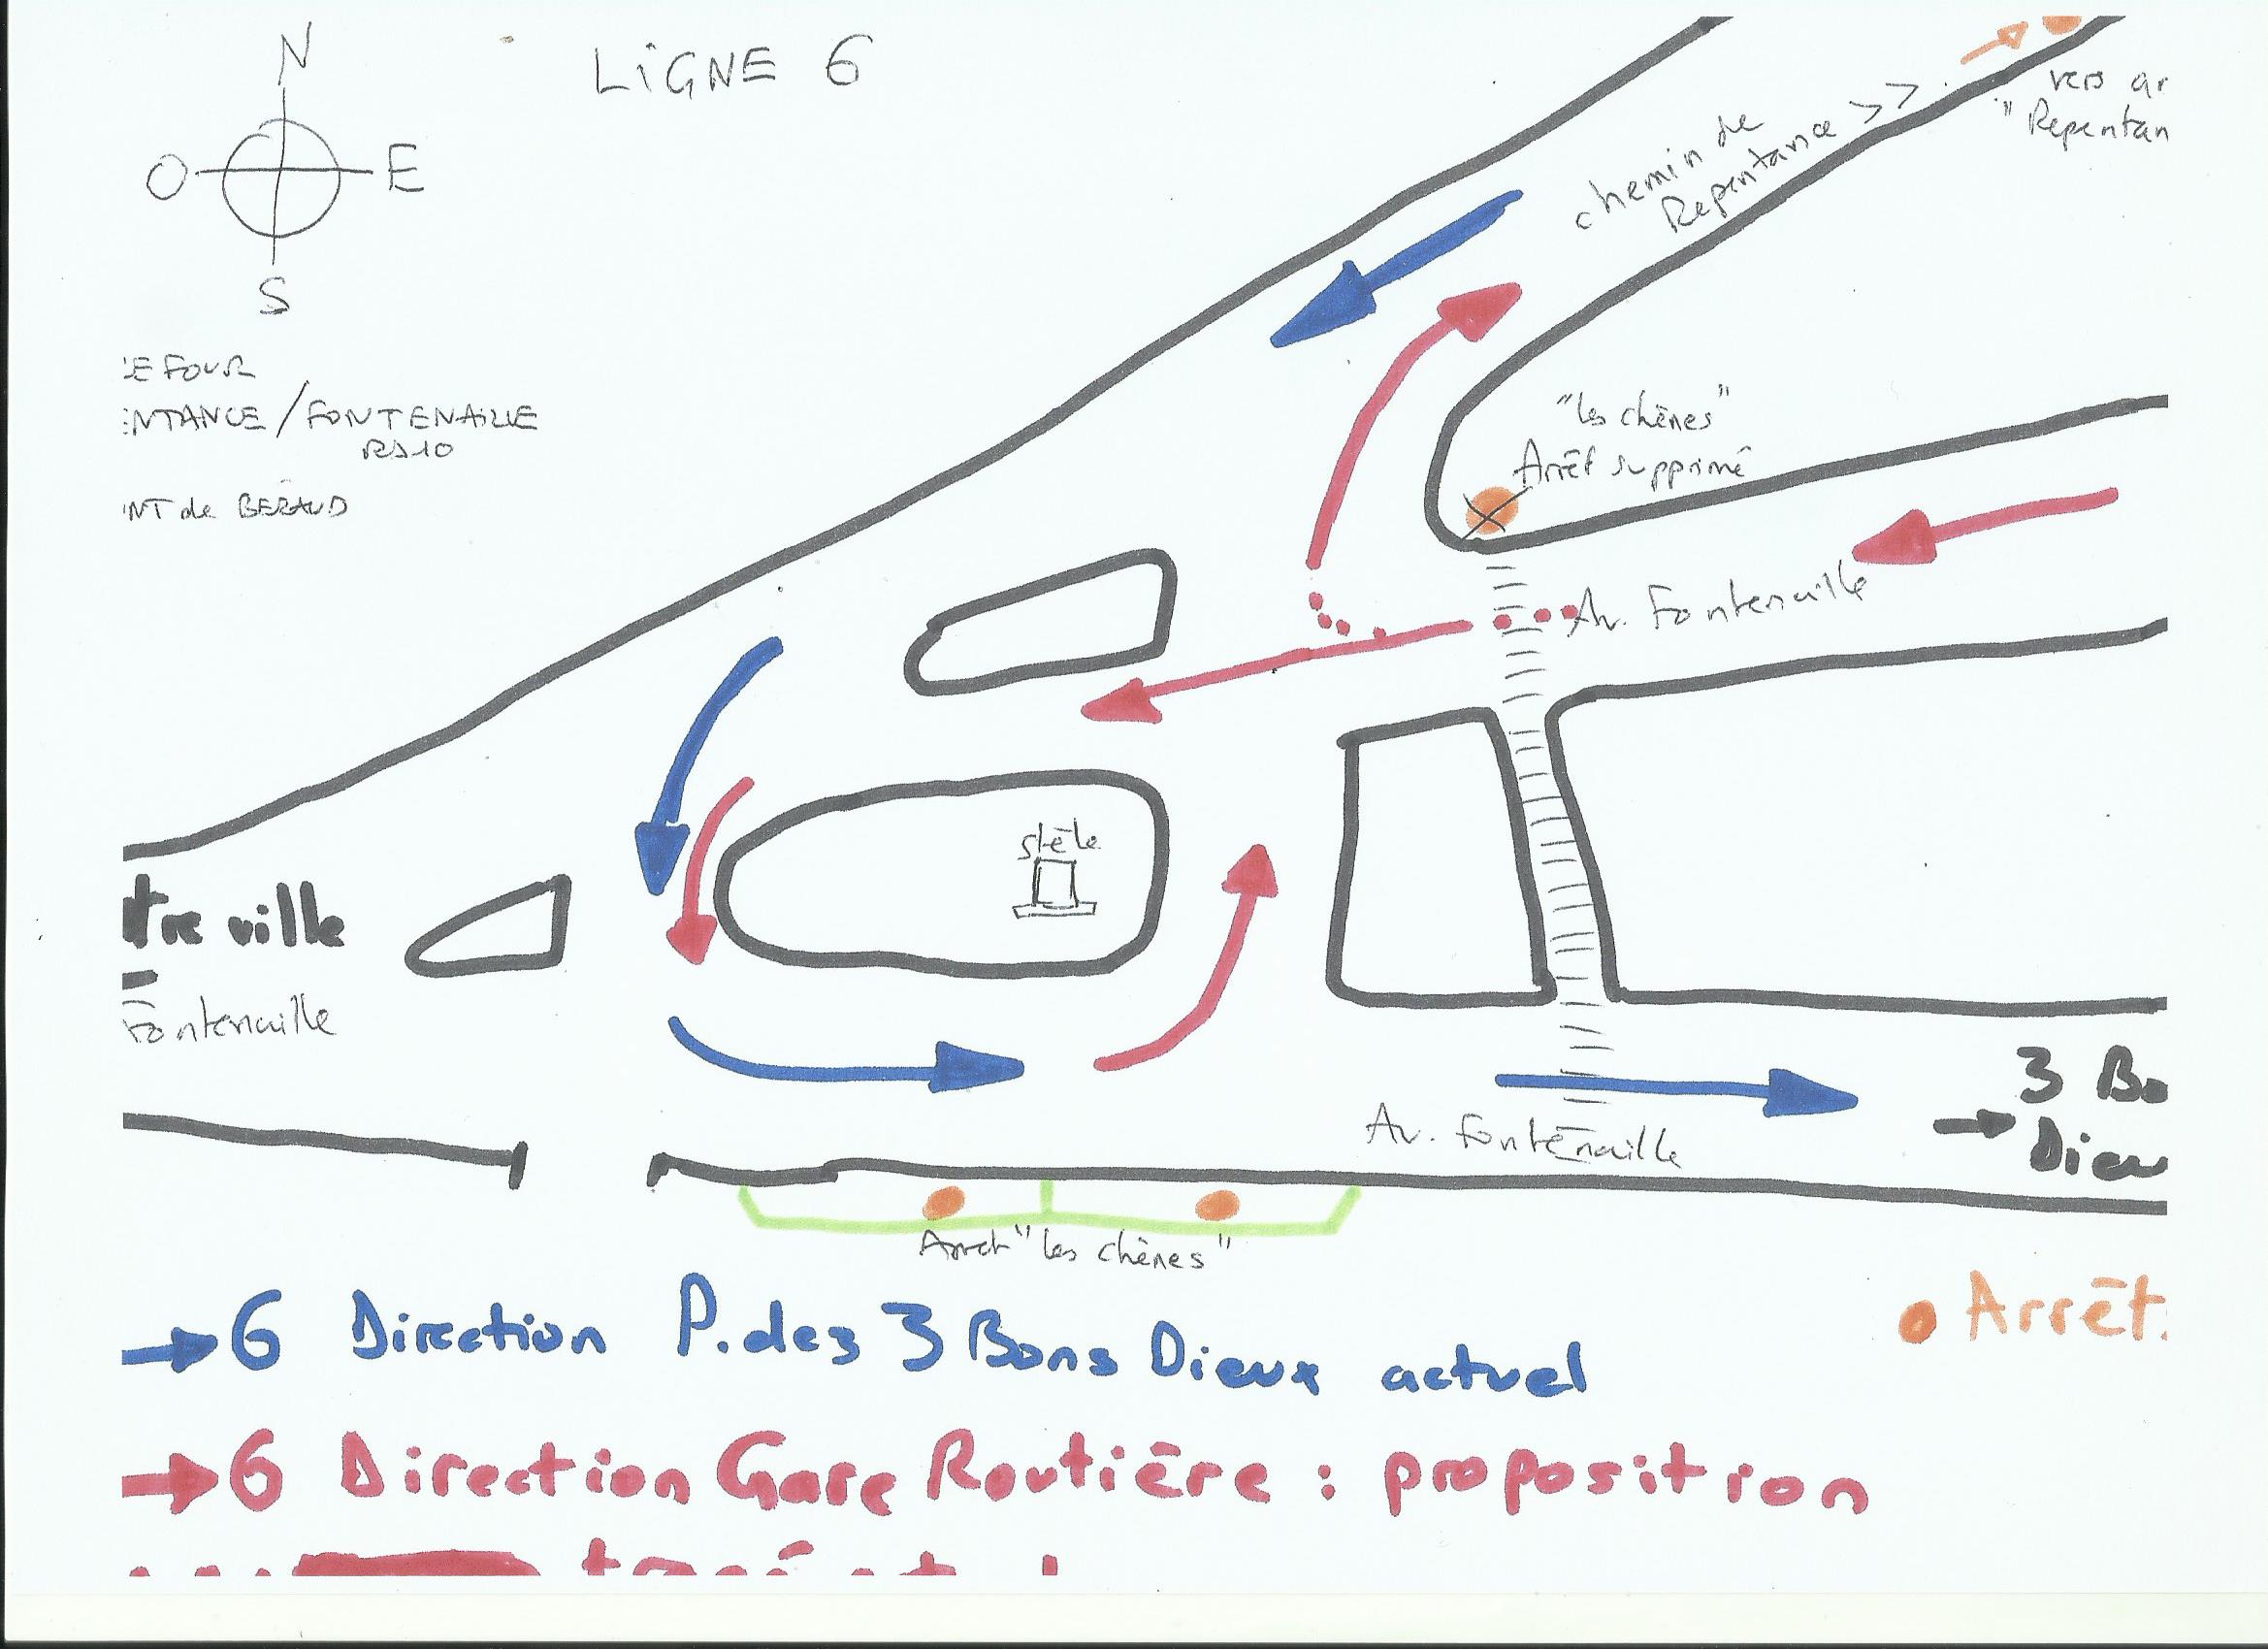 N
LiGNE 6
O E
S
EFOUR
ENTANCE / FONTENAILLE
RD10
NT de BERAUD
chemin de
Repentance >>
vers ar
"Repentan
"les chênes"
Arrêt supprimé
Av. Fontenaille
stèle
tre ville
Fontenaille
3 Bo
Dieu
Av. Fontenaille
Arret "les chênes"
6 Direction P. des 3 Bons Dieux actuel
Arrêt
6 Direction Gare Routière : proposition